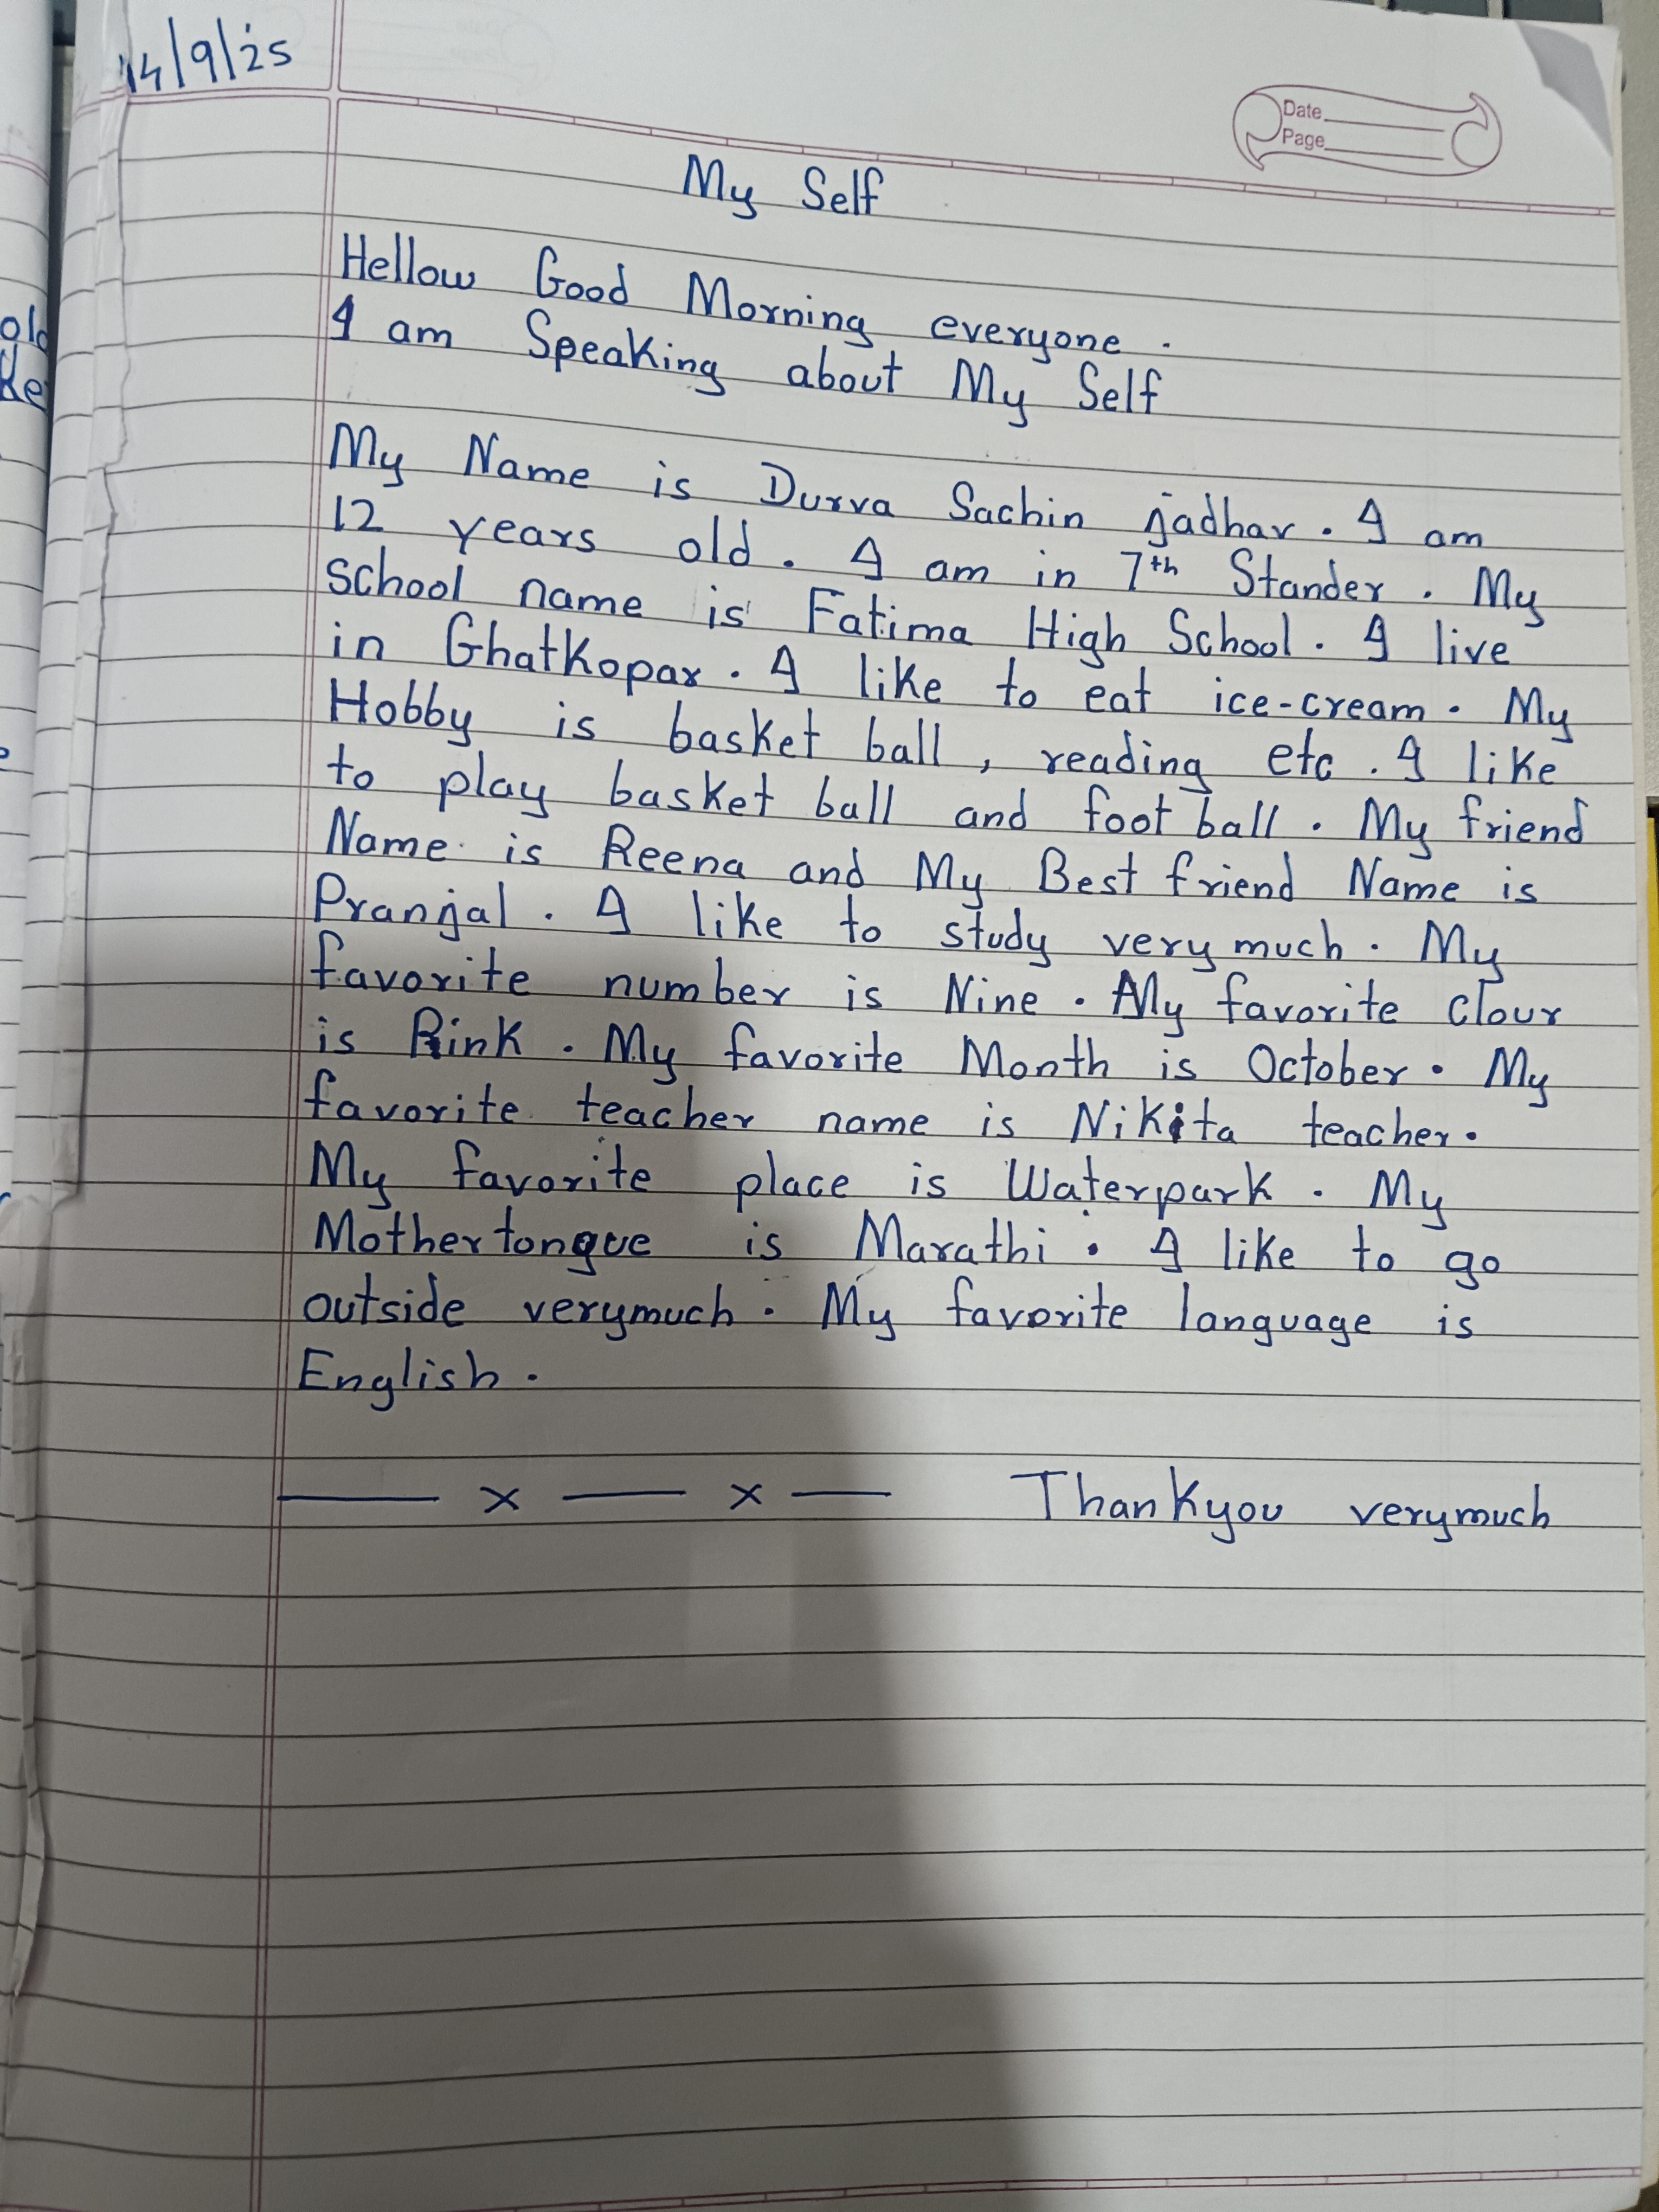 14/9/25
Date
Page
My Self
Hellow Good Morning everyone.
I am Speaking about My Self
My Name is Durva Sachin jadhav. I am
12 years old. I am in 7th Stander. My
school name is Fatima High School. I live
in Ghatkopar. I like to eat ice-cream. My
Hobby is basket ball, reading etc. I like
to play basket ball and foot ball. My friend
Name is Reena and My Best friend Name is
Pranjal. I like to study very much. My
favorite number is Nine. My favorite clour
is Pink. My favorite Month is October. My
favorite teacher name is Nikita teacher.
My favorite place is Waterpark. My
Mothertongue is Marathi. I like to go
outside verymuch. My favorite language is
English.
— x — x — Thankyou verymuch